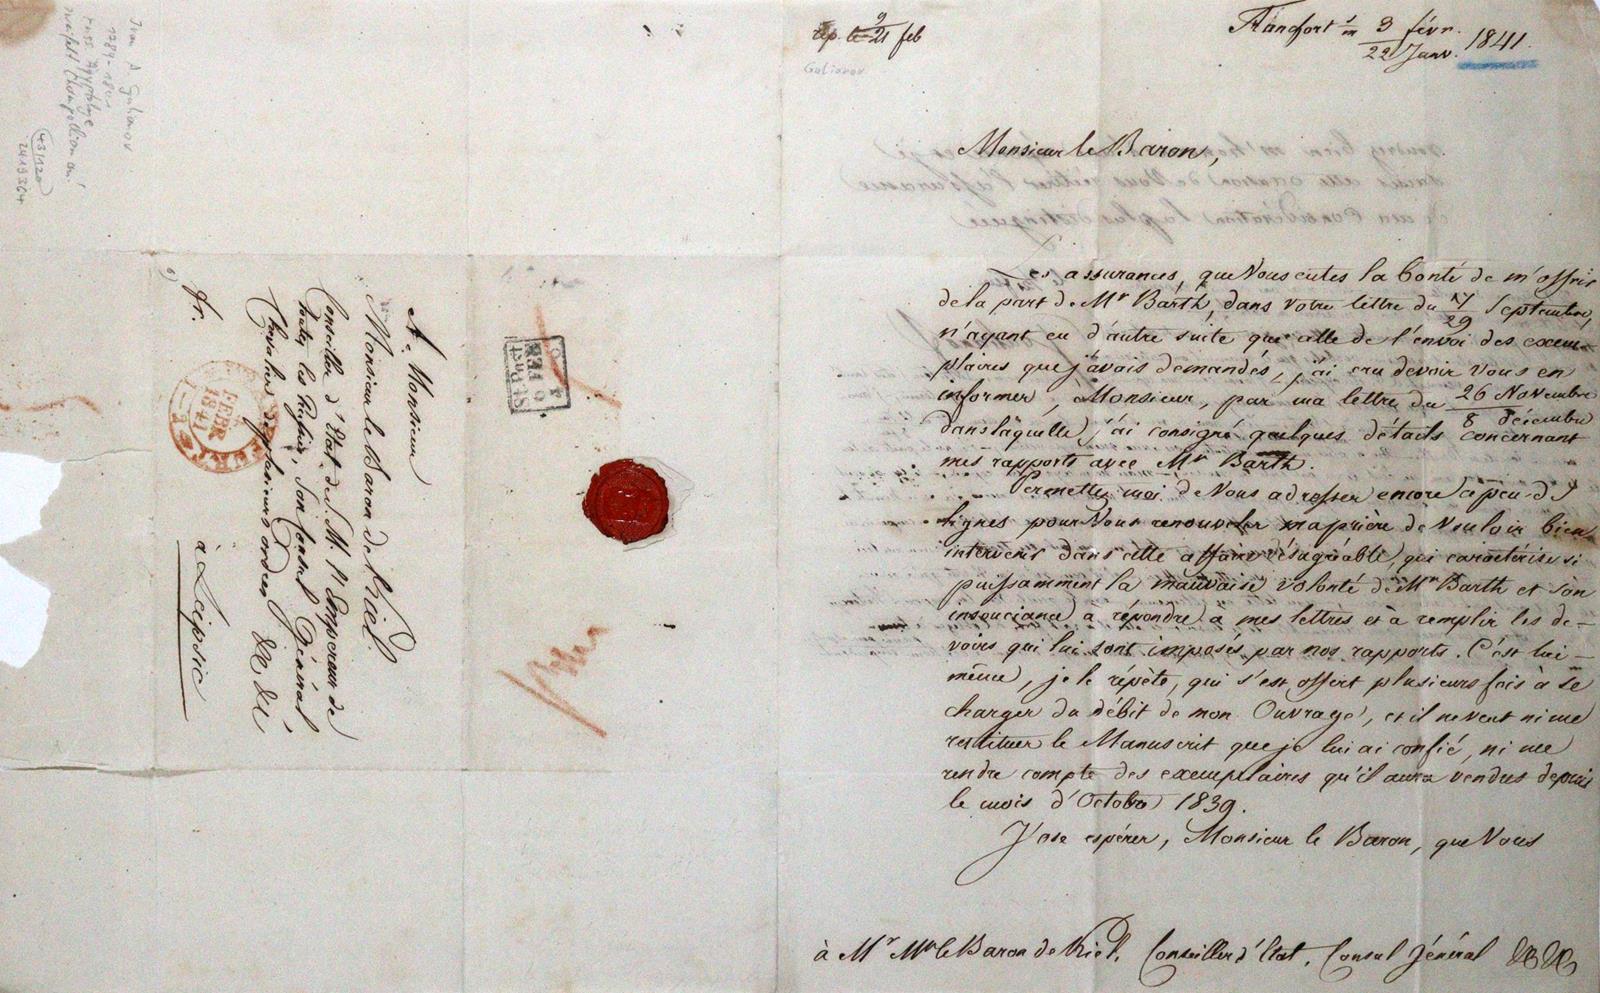 Ivan A. Gulianov
1789-1841
russ. Ägyptologe
43/120
2419364
A. Monsieur
Monsieur le Baron de Kiel.
Conseiller d'Etat de S. M. l'Empereur de
toutes les Russies, Son Consul Général
Chevalier de plusieurs ordres &c &c
fr.
à Leipsic
FEBR
1841
St. Post
9 FEB
rép. le 9/21 feb
Gulianov
Francfort s/m 3 févr. / 22 Janv. 1841.
Monsieur le Baron,
Les assurances, que Vous eutes la bonté de m'offrir
de la part de Mr Barth, dans votre lettre du 17/29 Septembre,
n'ayant eu d'autre suite que celle de l'envoi des exem-
plaires que j'avais demandés, j'ai cru devoir Vous en
informer, Monsieur, par ma lettre du 26 Novembre / 8 Décembre
dans laquelle j'ai consigné quelques détails concernant
mes rapports avec Mr Barth.
Permettez moi de Vous adresser encore ce peu de
lignes pour Vous renouveler ma prière de vouloir bien
intervenir dans cette affaire désagréable, qui caractérise si
puissamment la mauvaise volonté de Mr Barth et son
insouciance à répondre à mes lettres et à remplir les de-
voirs qui lui sont imposés par nos rapports. C'est lui-
même, je le répète, qui s'est offert plusieurs fois à se
charger du débit de mon Ouvrage, et il ne veut ni me
restituer le Manuscrit que je lui ai confié, ni me
rendre compte des exemplaires qu'il aura vendus depuis
le mois d'Octobre 1839.
J'ose espérer, Monsieur le Baron, que Vous
à Mr Mr le Baron de Kiel, Conseiller d'Etat, Consul Général &c &c